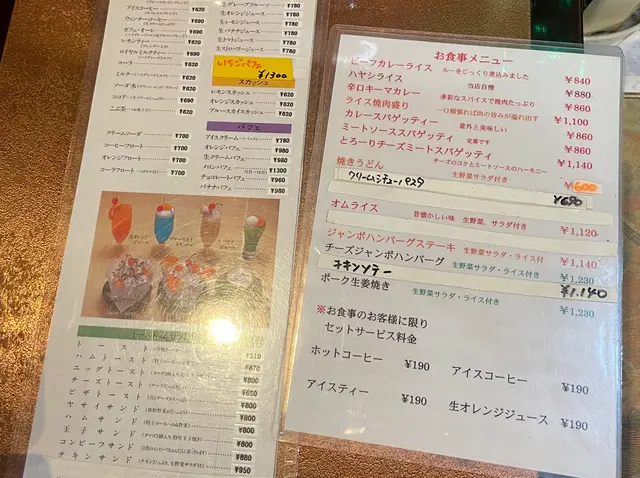 アイスコーヒー ¥620
ウィンナーコーヒー ¥690
カフェ・オーレ ¥690
レモンティー ¥620
ロイヤルミルクティー ¥690
コーラ ¥620
ミルク ¥620
ソーダ水 ¥620
ココア ¥690
こぶ茶 ¥620
クリームソーダ ¥700
コーヒーフロート ¥700
オレンジフロート ¥700
コーラフロート ¥700
生グレープフルーツ ¥780
生オレンジジュース ¥780
生レモンジュース ¥780
生バナナジュース ¥780
生トマトジュース ¥780
生ストロベリージュース ¥780
いちごパフェ
¥1300
スカッシュ
レモンスカッシュ ¥620
オレンジスカッシュ ¥620
ブルースカイスカッシュ ¥620
パフェ
アイスクリーム ¥780
オレンジパフェ ¥980
生クリームパフェ ¥980
メロンパフェ ¥1300
チョコレートパフェ ¥960
バナナパフェ ¥980
トースト ¥510
ハムトースト ¥870
エッグトースト ¥800
チーズトースト ¥800
ピザトースト ¥650
ヤサイサンド ¥800
ハムサンド ¥800
玉子サンド ¥800
コンビーフサンド ¥880
チキンサンド ¥950
お食事メニュー
ビーフカレーライス ルーをじっくり煮込みました ¥840
ハヤシライス 当店自慢 ¥880
辛口キーマカレー 多彩なスパイスで挽肉たっぷり ¥860
ライス焼肉盛り 一口頬張れば肉の旨みが溢れ出す ¥1,100
カレースパゲッティー 意外と美味しい ¥860
ミートソーススパゲッティ 定番です ¥860
とろーりチーズミートスパゲッティ チーズのコクとミートソースのハーモニー ¥1,140
焼きうどん 生野菜サラダ付き ¥600
クリームシチューパスタ ¥680
オムライス 昔懐かしい味 生野菜、サラダ付き ¥1,120
ジャンボハンバーグステーキ 生野菜サラダ・ライス付 ¥1,140
チーズジャンボハンバーグ 生野菜サラダ・ライス付き ¥1,230
チキンソテー ¥1.140
ポーク生姜焼き 生野菜サラダ・ライス付き ¥1,230
※お食事のお客様に限り
セットサービス料金
ホットコーヒー ¥190 アイスコーヒー ¥190
アイスティー ¥190 生オレンジジュース ¥190